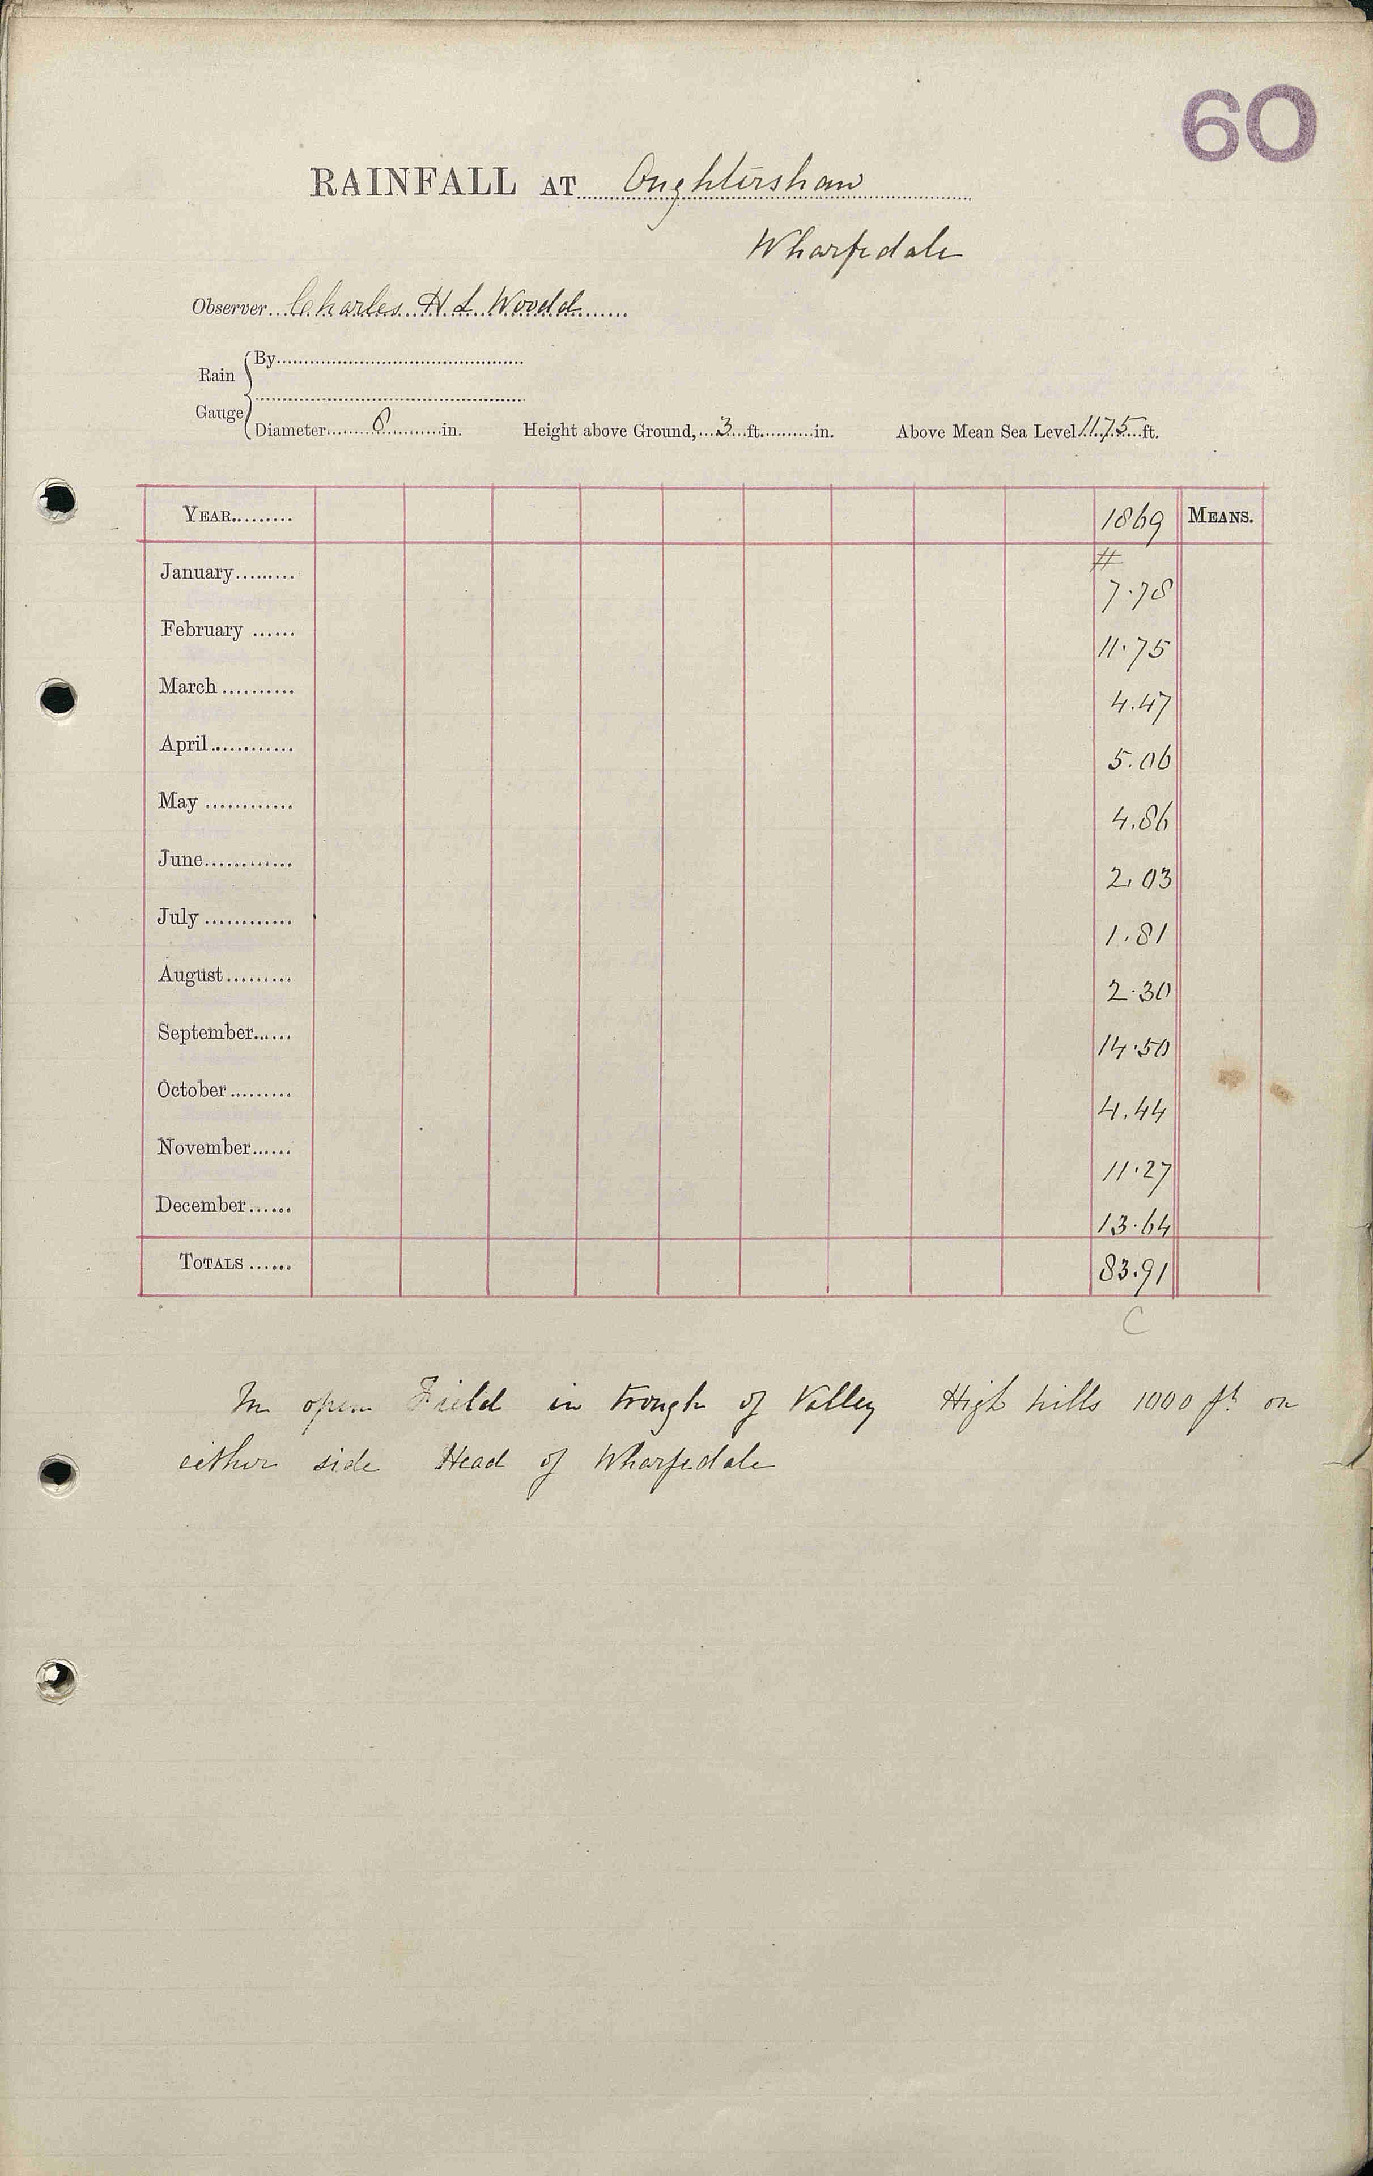 60
RAINFALL AT Oughtershaw
Wharfedale
Observer Charles H L Woodd
Rain Gauge
By
Diameter 8 in. Height above Ground, 3 ft. in. Above Mean Sea Level 1175 ft.
YEAR 1869 MEANS.
#
January 7.78
February 11.75
March 4.47
April 5.06
May 4.86
June 2.03
July 1.81
August 2.30
September 14.50
October 4.44
November 11.27
December 13.64
TOTALS 83.91
C
In open Field in trough of Valley High hills 1000 ft on
either side Head of Wharfedale